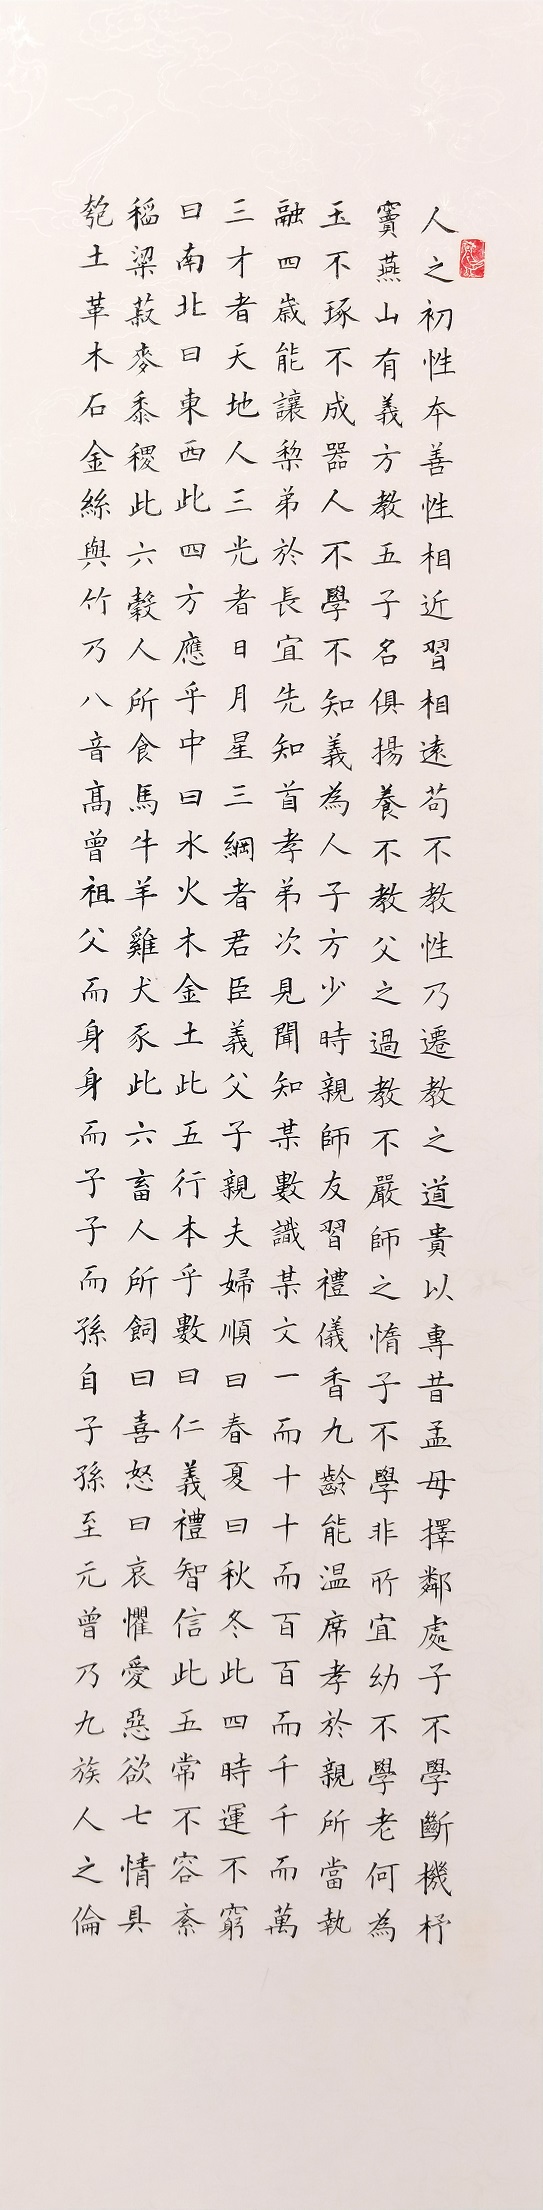 人之初性本善性相近習相遠苟不教性乃遷教之道貴以專昔孟母擇鄰處子不學斷機杼
竇燕山有義方教五子名俱揚養不教父之過教不嚴師之惰子不學非所宜幼不學老何為
玉不琢不成器人不學不知義為人子方少時親師友習禮儀香九齡能温席孝於親所當執
融四歲能讓梨弟於長宜先知首孝弟次見聞知某數識某文一而十十而百百而千千而萬
三才者天地人三光者日月星三綱者君臣義父子親夫婦順曰春夏曰秋冬此四時運不窮
曰南北曰東西此四方應乎中曰水火木金土此五行本乎數曰仁義禮智信此五常不容紊
稻粱菽麥黍稷此六穀人所食馬牛羊雞犬豕此六畜人所飼曰喜怒曰哀懼愛惡欲七情具
匏土革木石金絲與竹乃八音高曾祖父而身身而子子而孫自子孫至元曾乃九族人之倫